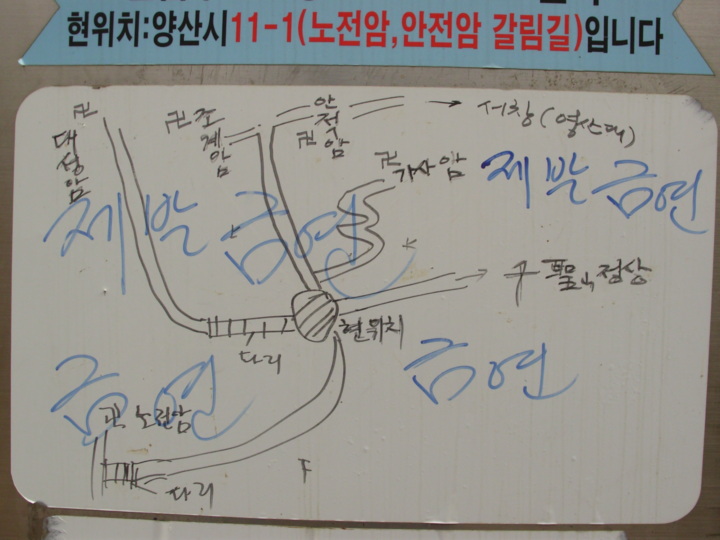 현위치:양산시11-1(노전암,안전암 갈림길)입니다
卍 대성암
卍 조계암
안적암
卍
서창(영산대)
卍 가사암
제발 금연
제발 금연
정상
현위치
다리
금연
금연
노전암
다리